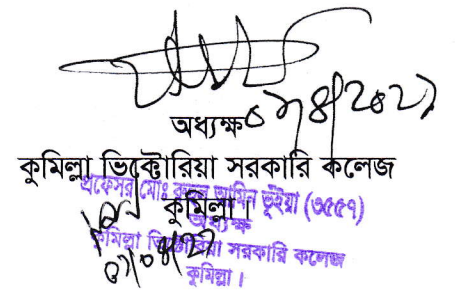 অধ্যক্ষ
কুমিল্লা ভিক্টোরিয়া সরকারি কলেজ
কুমিল্লা।
প্রফেসর মোঃ রুহুল আমিন ভূঁইয়া (৩৫৫৭)
অধ্যক্ষ
কুমিল্লা ভিক্টোরিয়া সরকারি কলেজ
কুমিল্লা।